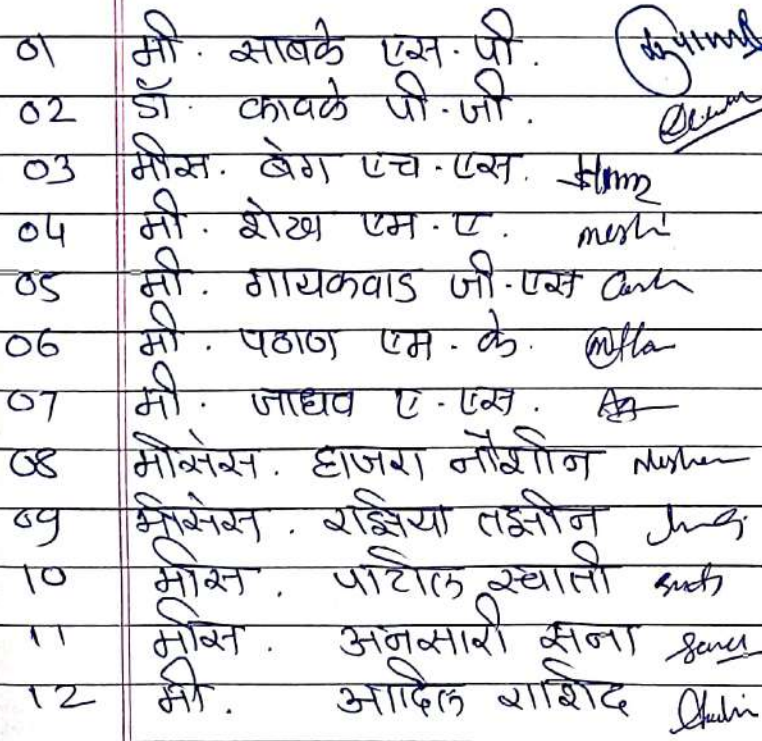 01 मी. साबळे एस.पी.
02 डॉ. कावळे पी.जी.
03 मीस. बेग एच.एस.
04 मी. शेख एम.ए.
05 मी. गायकवाड जी.एस
06 मी. पठाण एम.के.
07 मी. जाधव ए.एस.
08 मीसेस. हाजरा नौशीन
09 मीसेस. रझिया तझीन
10 मीस. पाटील स्वाती
11 मीस. अनसारी सना
12 मी. आदिल राशिद